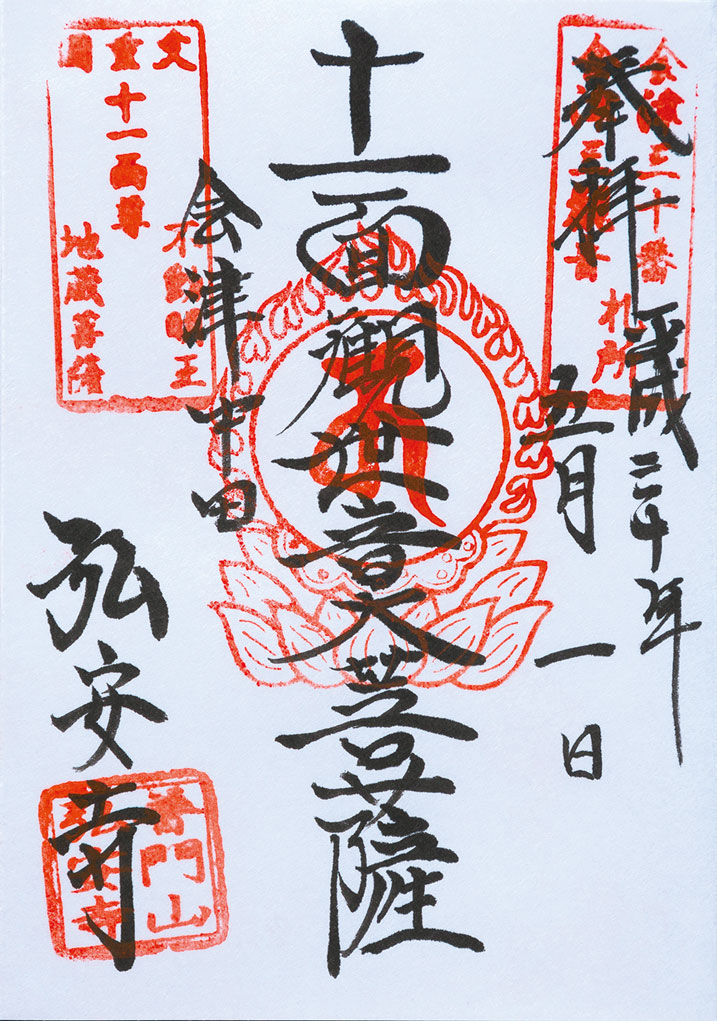 奉拝
平成三十年
五月一日
会津三十番
札所
十一面観世音大菩薩
会津中田
文重国
不動明王
十一面尊
地蔵菩薩
弘安寺
普門山
弘安寺